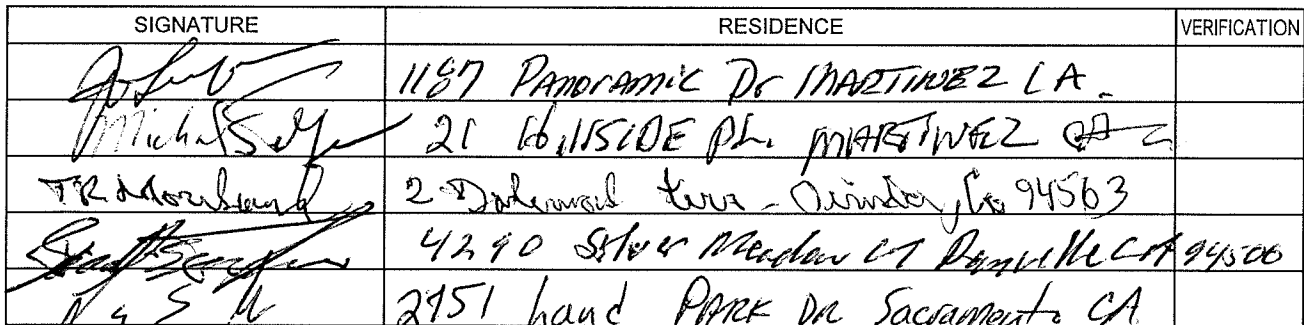 SIGNATURE RESIDENCE VERIFICATION
1187 PANORAMIC Dr MARTINEZ CA.
Michal 21 HillSIDE PL. MARTINEZ CA
TR 2 terr - Orinda, Ca 94563
4290 Silver Meadow CT Danville CA 94506
2751 Land PARK DR Sacramento CA